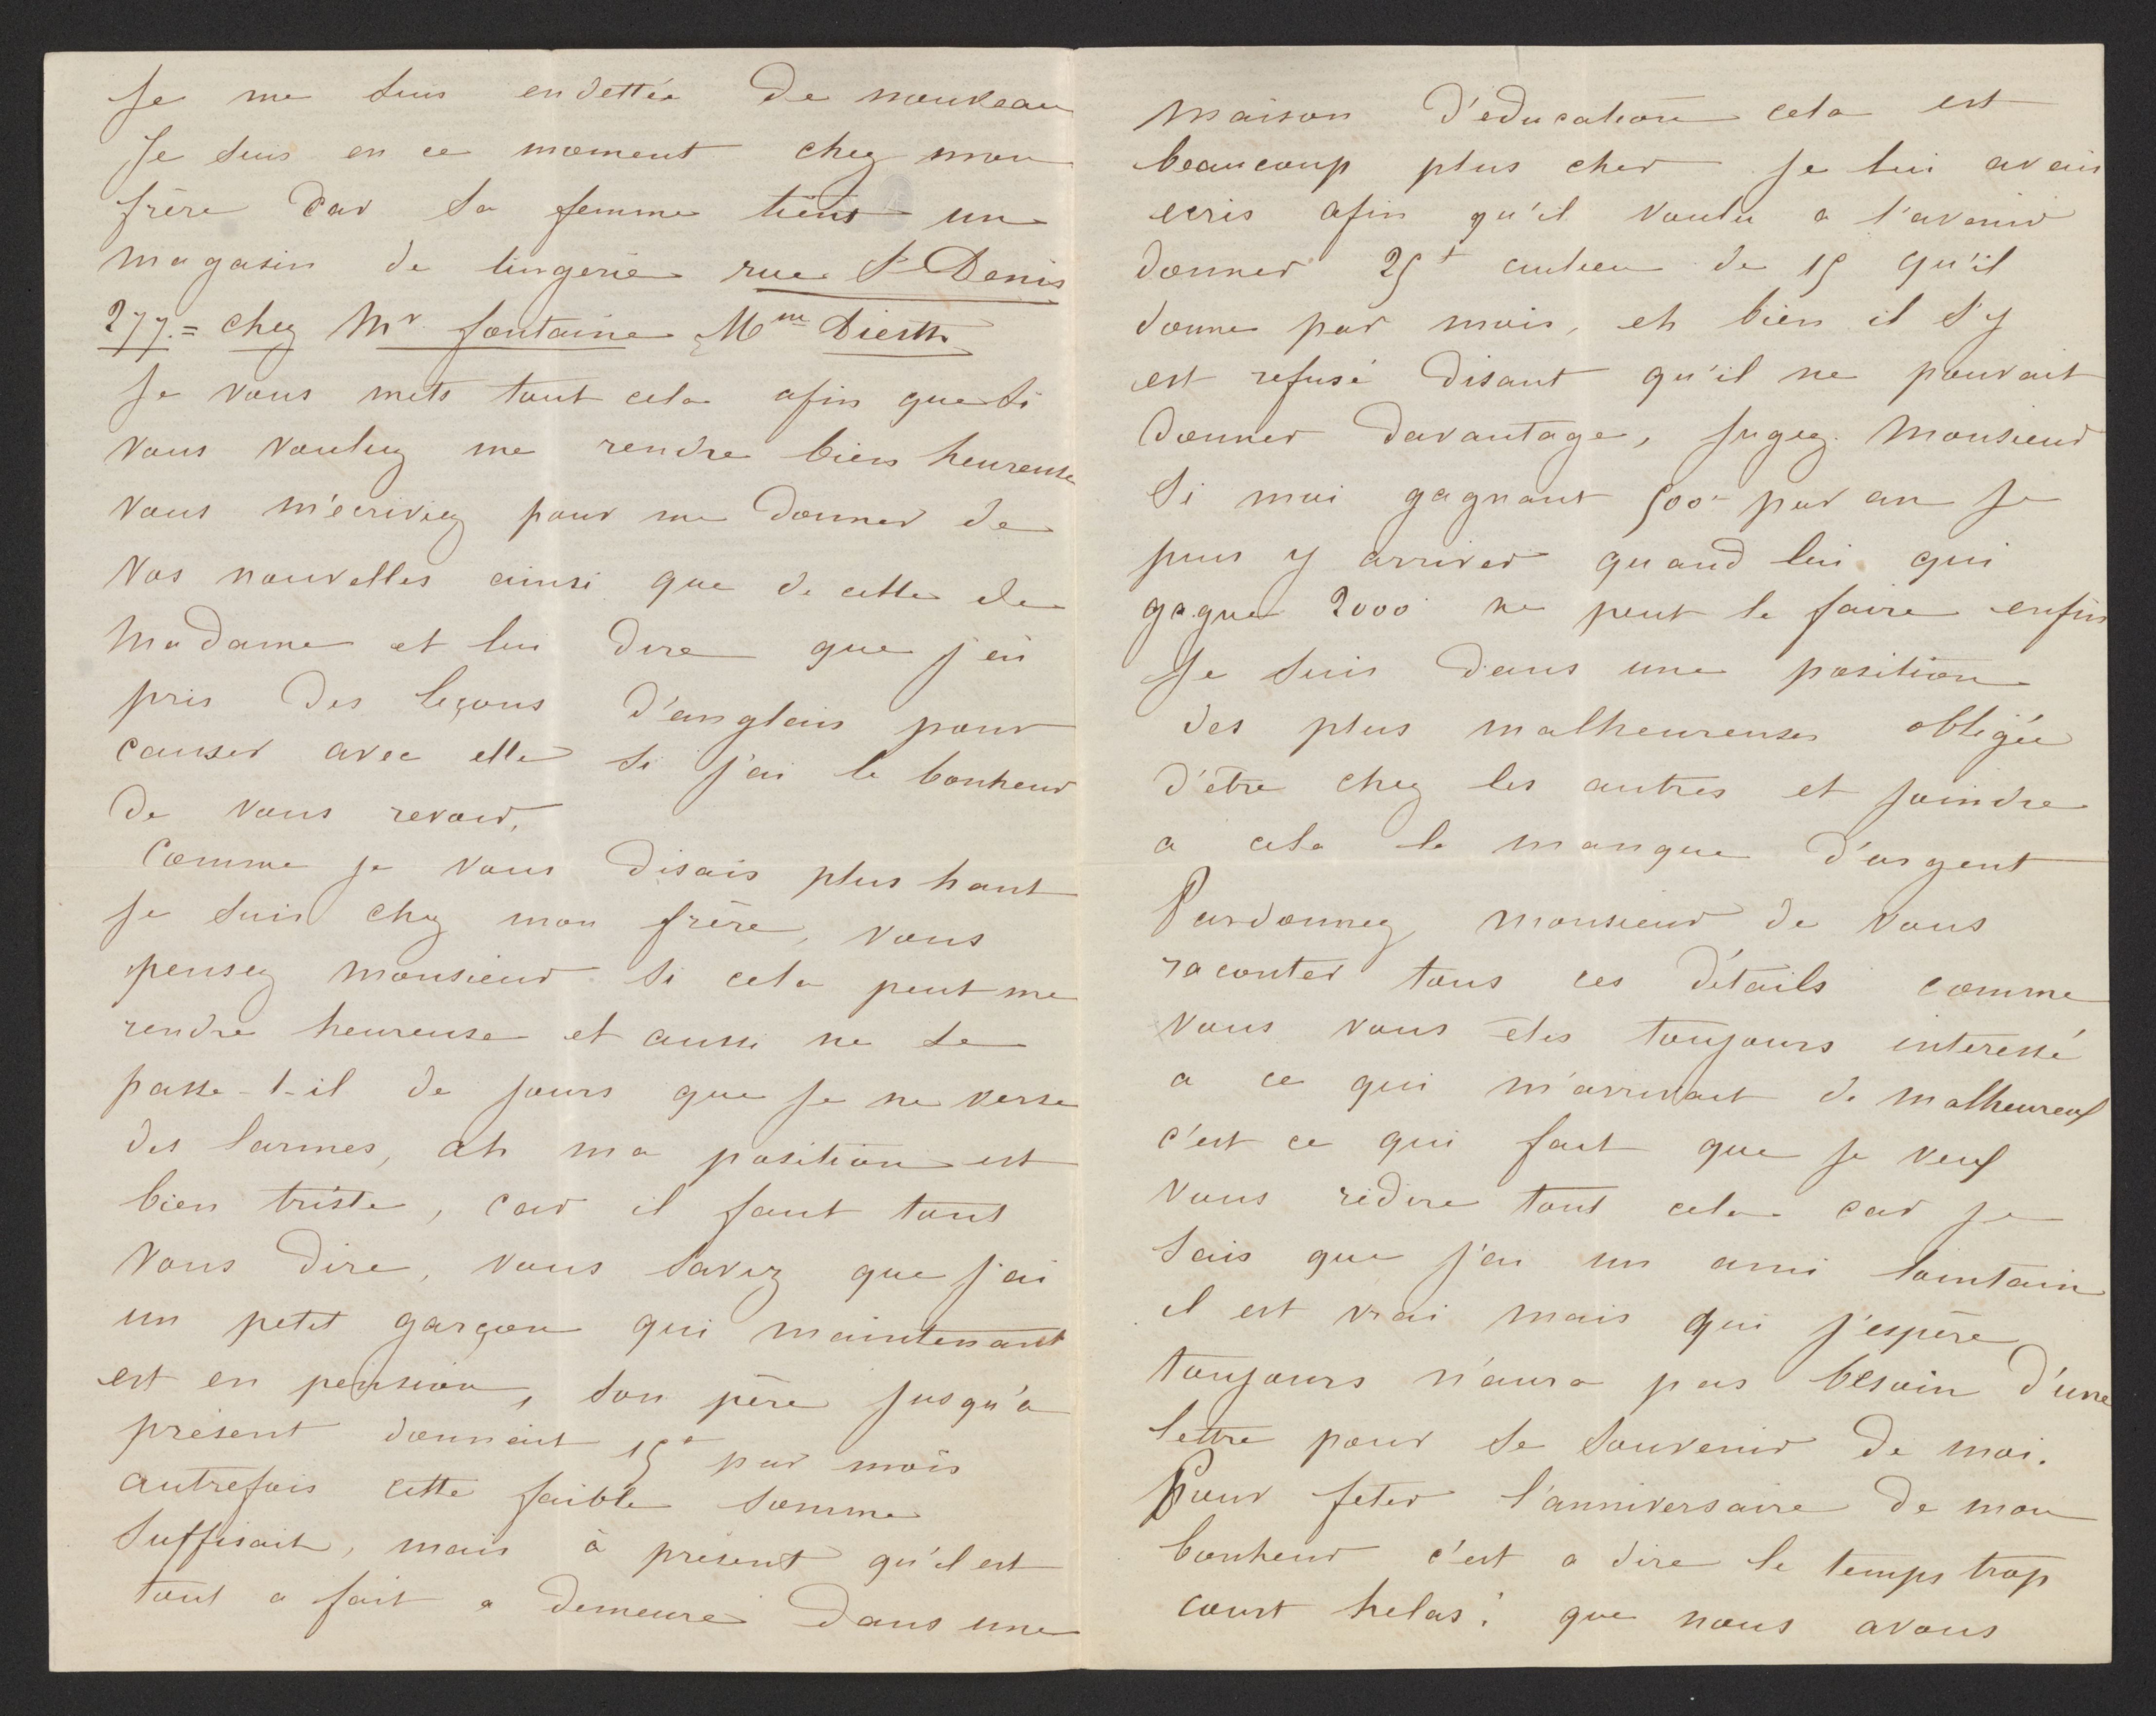 Je me suis endettée de nouveau
Je suis en ce moment chez mon
frère car sa femme tient un
magasin de lingerie rue St Denis
277. = chez Mr fontaine Mme Dierth
Je vous mets tout cela afin que si
vous vouliez me rendre bien heureuse
vous m'écriviez pour me donner de
vos nouvelles ainsi que de celle de
Madame et lui dire que j'ai
pris des leçons d'anglais pour
causer avec elle si j'ai le bonheur
de vous revoir,
Comme je vous disais plus haut
je suis chez mon frère, vous
pensez monsieur si cela peut me
rendre heureuse et aussi ne se
passe-t-il de jours que je ne verse
des larmes, ah ma position est
bien triste, car il faut tout
vous dire, vous savez que j'ai
un petit garçon qui maintenant
est en pension, son père jusqu'à
présent donnait 15f par mois
autrefois cette faible somme
suffisait, mais à présent qu'il est
tout a fait a demeure dans une
maison d'éducation cela est
beaucoup plus cher je lui avais
ecris afin qu'il voulu a l'avenir
donner 25f aulieu de 15 qu'il
donne par mois, eh bien il s'y
est refusé disant qu'il ne pouvait
donner davantage, jugez monsieur
si moi gagnant 500f par an je
puis y arriver quand lui qui
gagne 2000 ne peut le faire enfin
je suis dans une position
des plus malheureuses obligée
d'être chez les autres et joindre
a cela le manque d'argent
Pardonnez monsieur de vous
raconter tous ces détails comme
vous vous êtes toujours interessé
a ce qui m'arrivait de malheureux
c'est ce qui fait que je veux
vous redire tout cela car je
sais que j'ai un ami lointain
il est vrai mais qui j'espère
toujours n'aura pas besoin d'une
lettre pour se souvenir de moi.
Pour feter l'anniversaire de mon
bonheur c'est a dire le temps trop
court helas! que nous avons